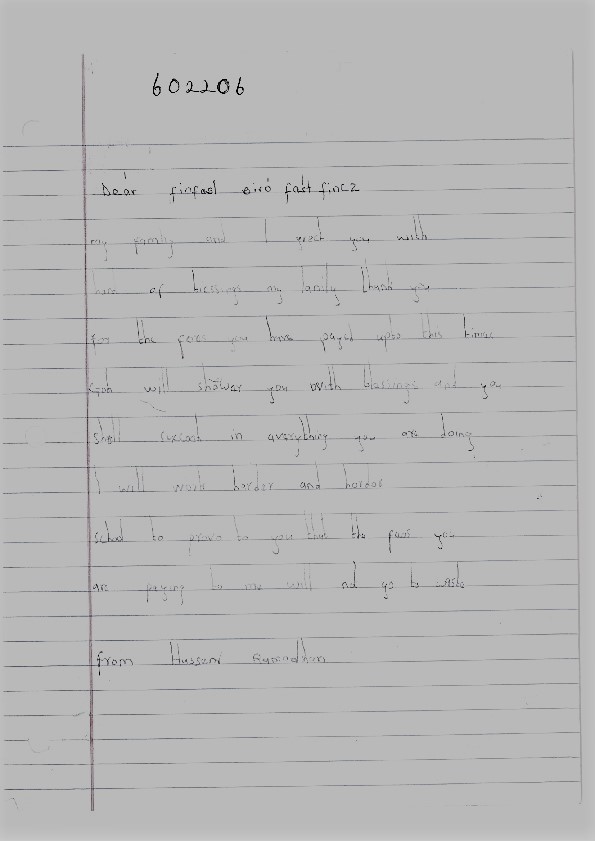 602206
Dear finfasl eiro fast fincz
my family and I greet you with
of blessings my family thank you
for the fees you have payed upto this time
God will shower you with blessings and you
shall in everything you are doing
I will work harder and harder
to you that the fees you
are paying to me will not go to waste
from Hussani Ramadhan